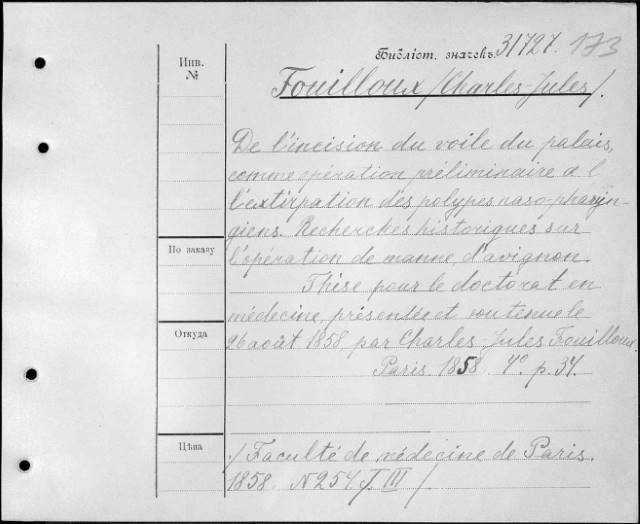 Инв.
№
Библіот. значекъ 31727. 173
Fouilloux /Charles-Jules/.
De l'incision du voile du palais,
comme opération préliminaire a l
l'extirpation des polypes naso-pharyn-
giens. Recherches historiques sur
По заказу
l'opération de manne, d'avignon.
Thèse pour le doctorat en
médecine, présentée et soutenue le
Откуда
26 août 1858 par Charles Jules Fouilloux.
Paris. 1858. 4º. p. 37.
Цѣна
/Faculté de médecine de Paris.
1858. N 254. T. III/